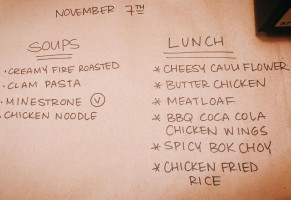 NOVEMBER 7TH
SOUPS
• CREAMY FIRE ROASTED
• CLAM PASTA
• MINESTRONE Ⓥ
• CHICKEN NOODLE
LUNCH
* CHEESY CAULIFLOWER
* BUTTER CHICKEN
* MEATLOAF
* BBQ COCA COLA
CHICKEN WINGS
* SPICY BOK CHOY
* CHICKEN FRIED
RICE